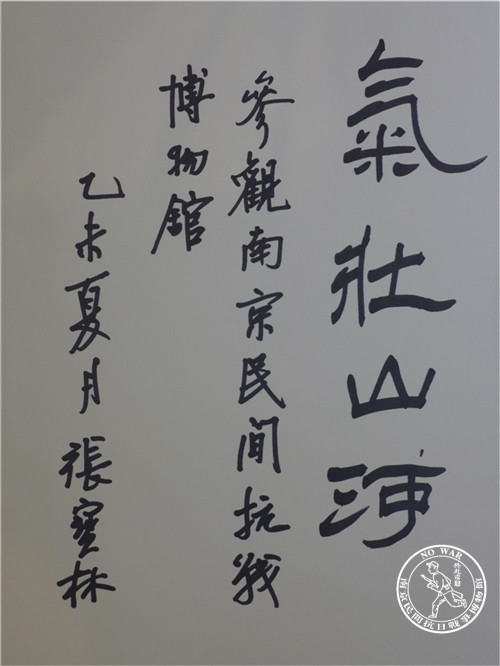 氣壯山河
參觀南京民間抗战
博物館
乙未夏月 張寶林
NO WAR
南京民間抗日戰爭博物館